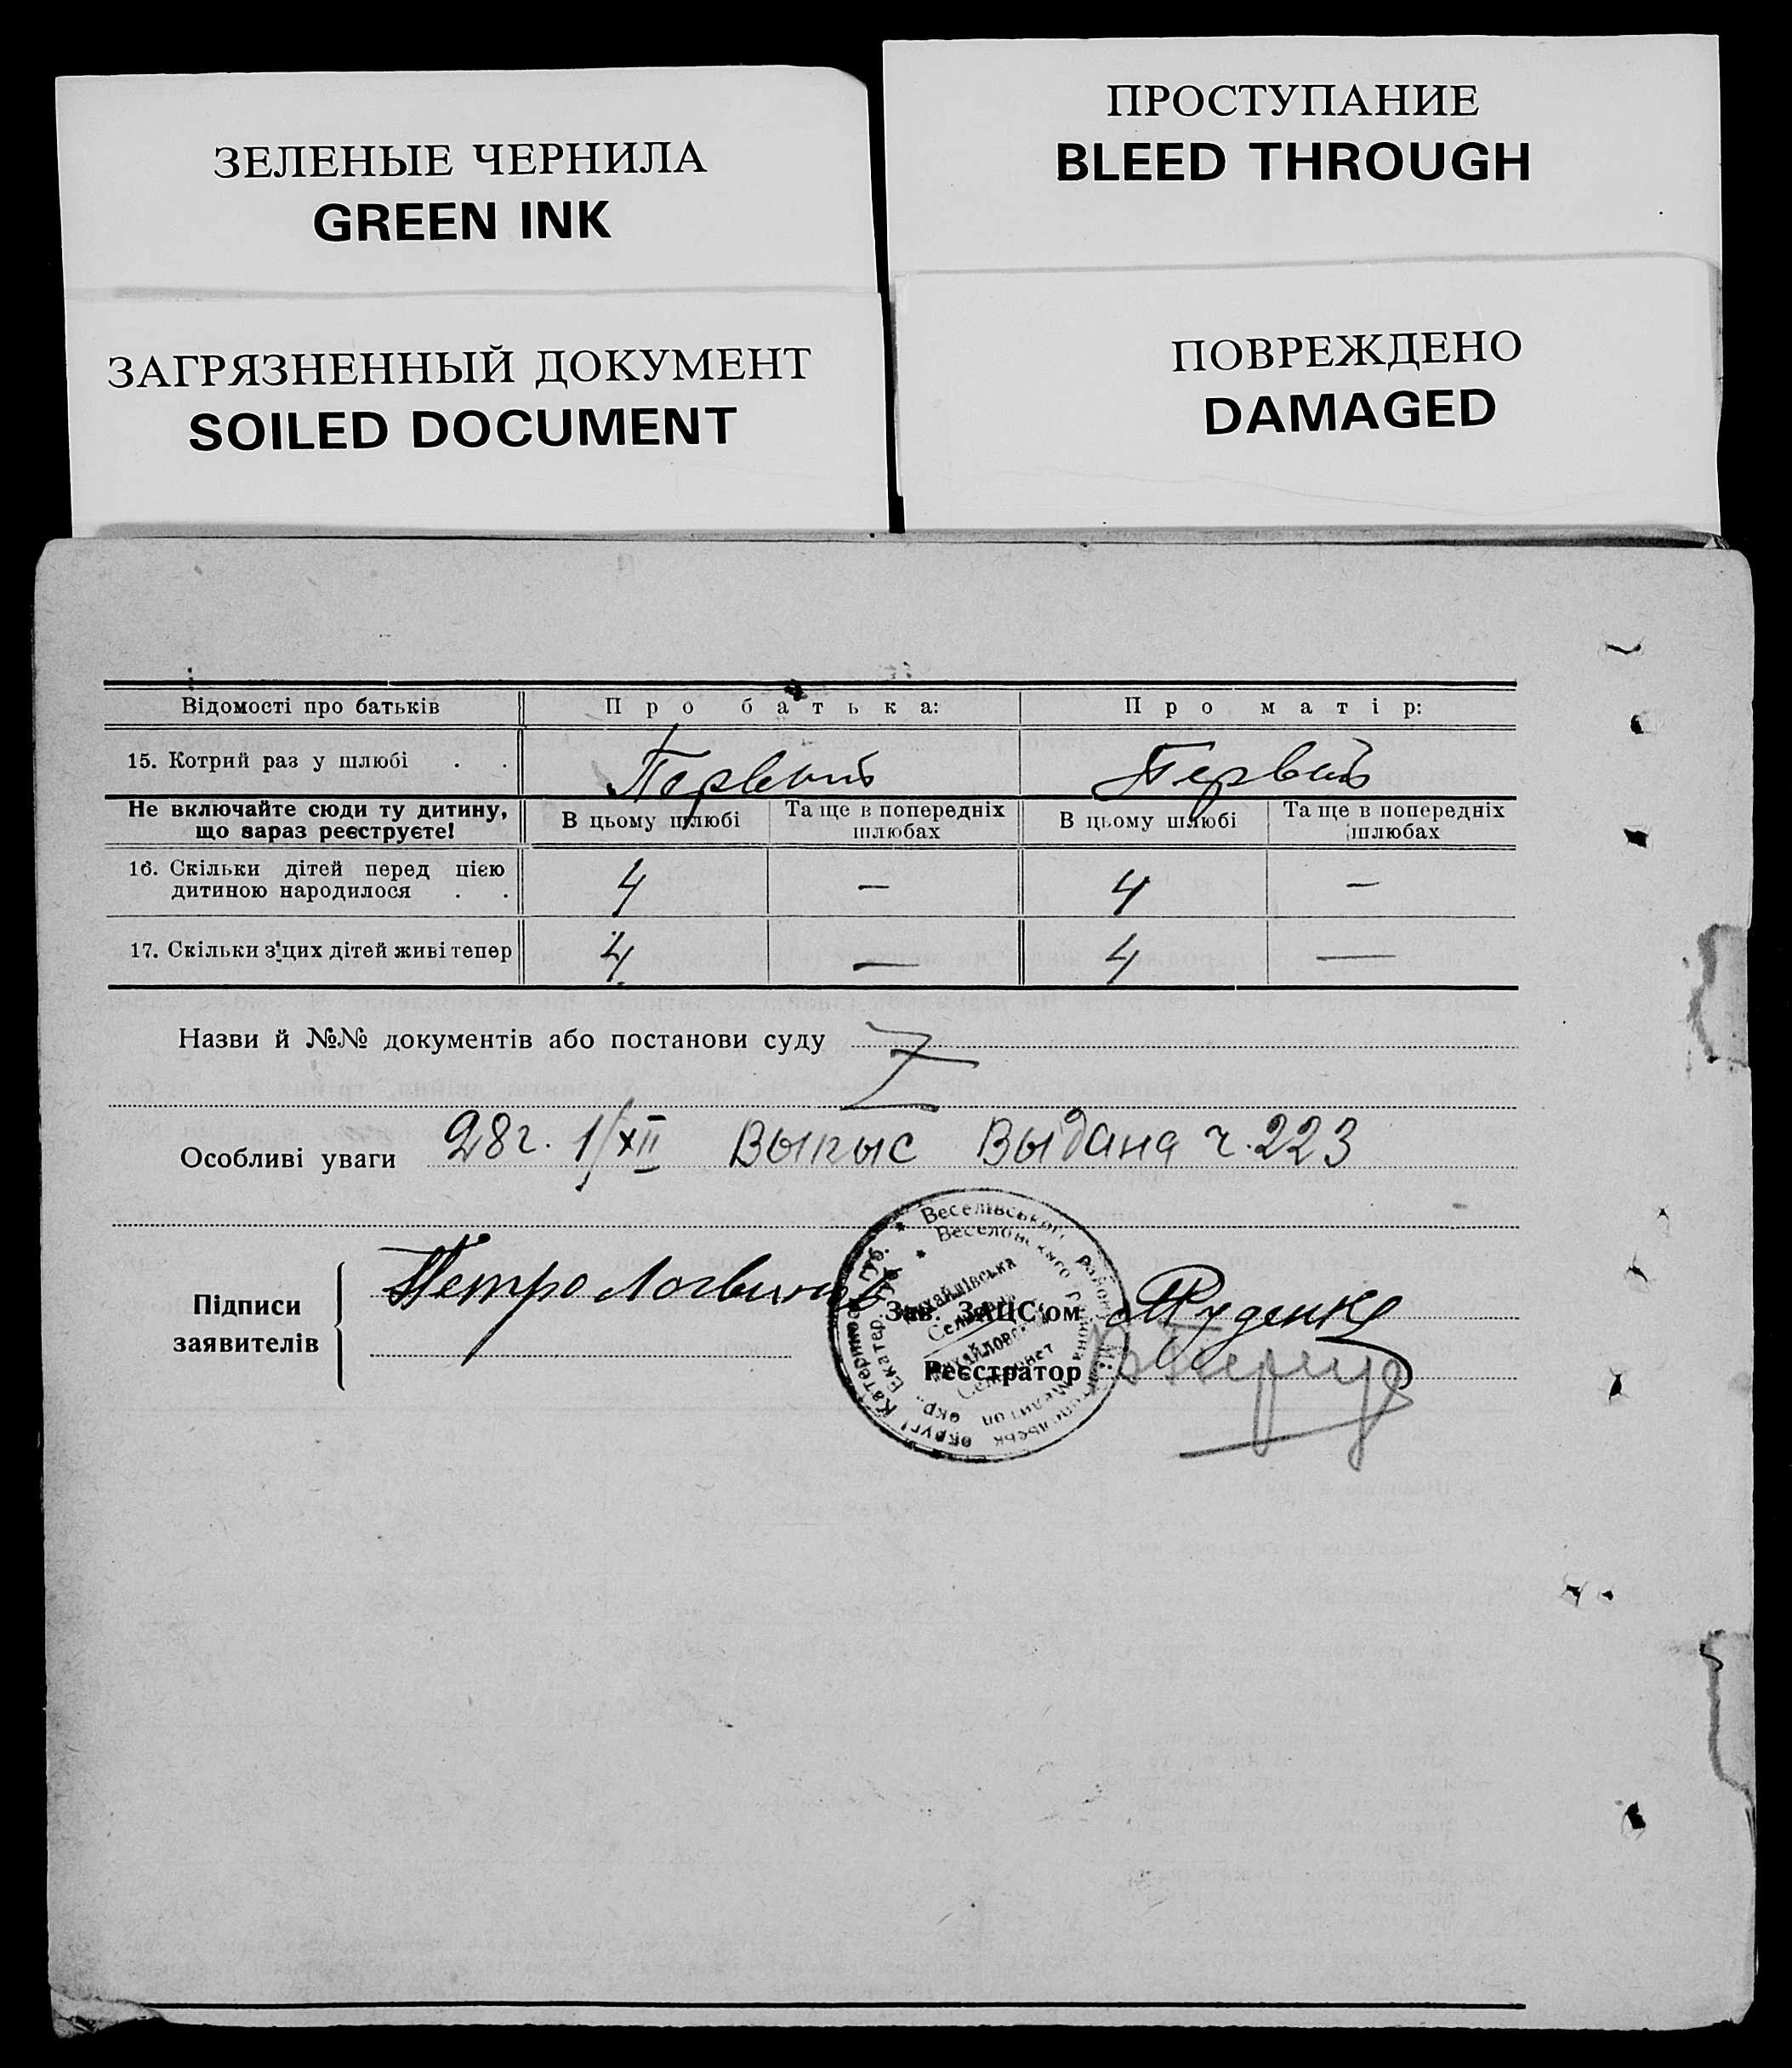 ЗЕЛЕНЫЕ ЧЕРНИЛА
GREEN INK
ЗАГРЯЗНЕННЫЙ ДОКУМЕНТ
SOILED DOCUMENT
ПРОСТУПАНИЕ
BLEED THROUGH
ПОВРЕЖДЕНО
DAMAGED
Відомості про батьків Про батька: Про матір:
15. Котрий раз у шлюбі . . Первый Первый
Не включайте сюди ту дитину, що зараз реєструєте! В цьому шлюбі Та ще в попередніх шлюбах В цьому шлюбі Та ще в попередніх шлюбах
16. Скільки дітей перед цією дитиною народилося . . 4 — 4 —
17. Скільки з цих дітей живі тепер 4 — 4 —
Назви й №№ документів або постанови суду
Особливі уваги 28г. 1/XII Выпыс Выдана ч. 223
Підписи заявителів Петро
Зав. ЗАЦС'ом Руденко
Реєстратор
Веселівського району
Веселовского района
Михайлівська
Михайловский
Сельсовет